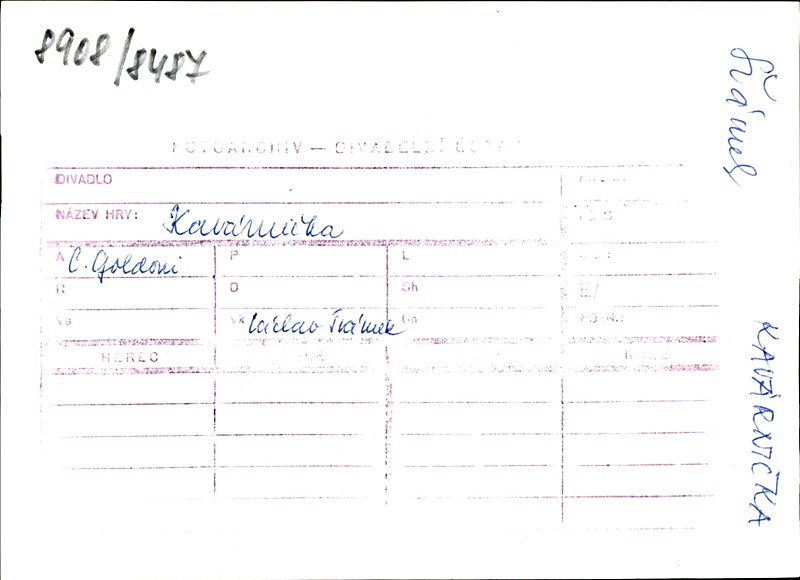 8908/8487
FOTOARCHIV — DIVADELNÍ ÚSTAV
DIVADLO
NÁZEV HRY: Kavárnička
A C. Goldoni P L
R D Sh
Vs Vk Václav Šrámek
HEREC
Šrámek
KAVÁRNIČKA